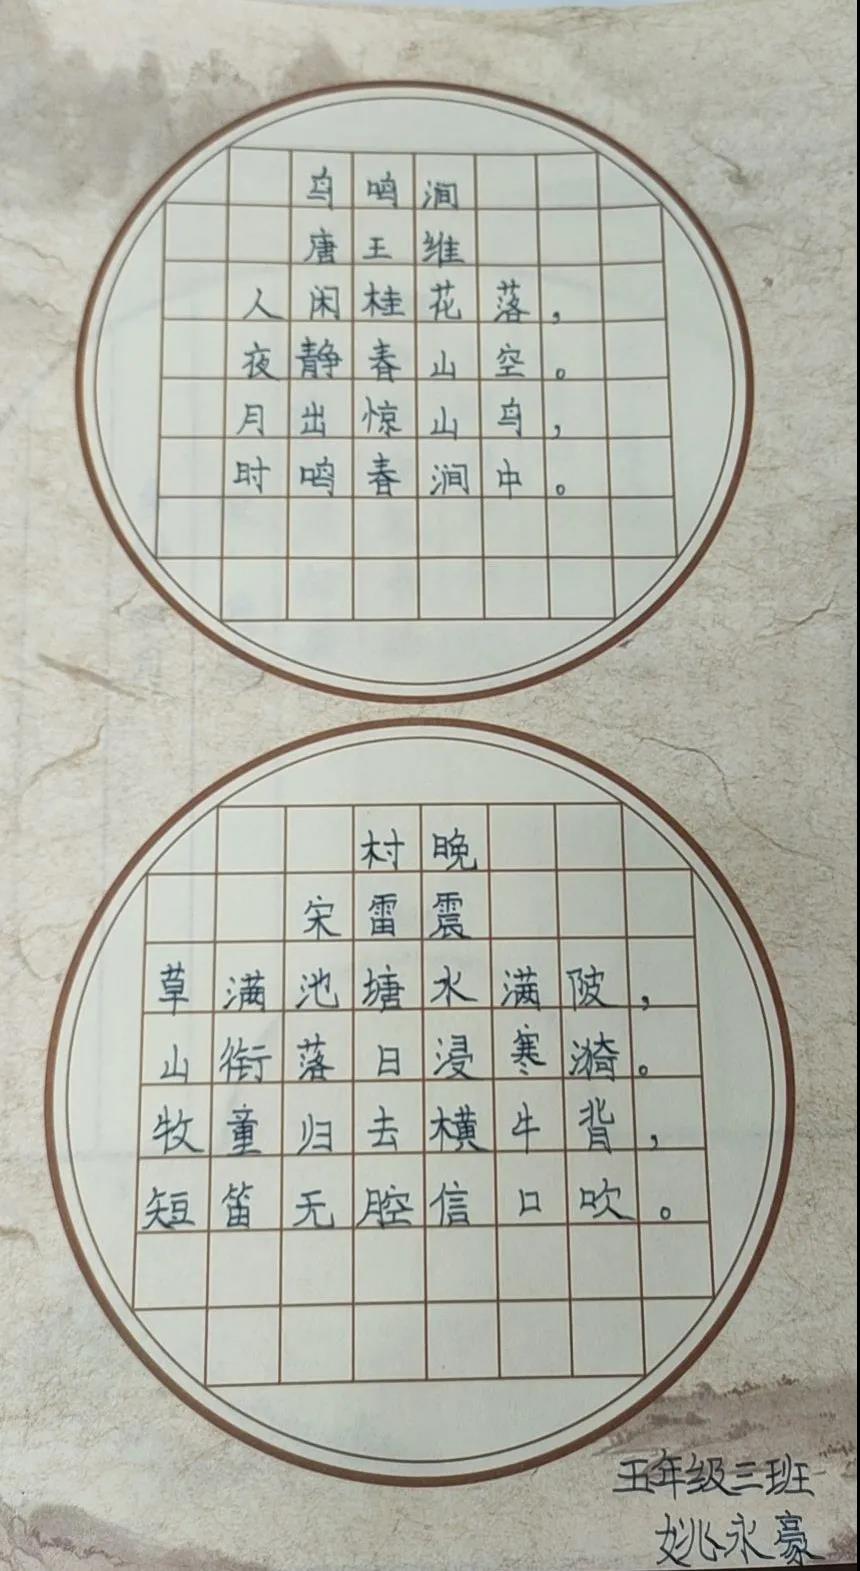 鸟鸣涧
唐王维
人闲桂花落，
夜静春山空。
月出惊山鸟，
时鸣春涧中。
村晚
宋雷震
草满池塘水满陂，
山衔落日浸寒漪。
牧童归去横牛背，
短笛无腔信口吹。
五年级三班
姚永豪